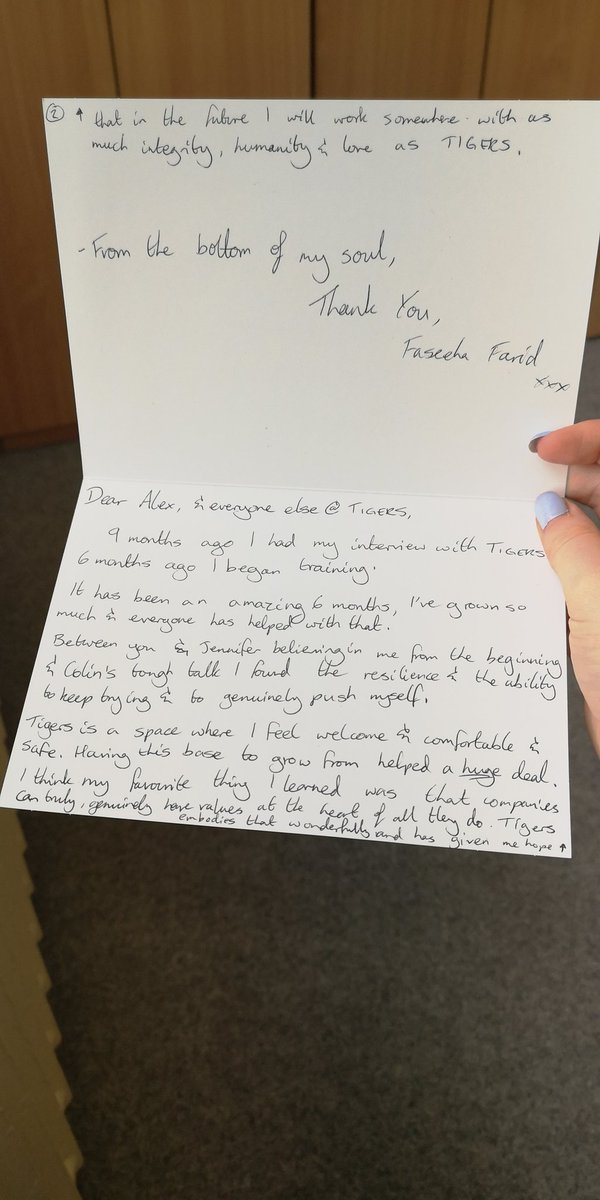 Dear Alex, & everyone else @ TIGERS,
9 months ago I had my interview with TIGERS
6 months ago I began training.
It has been an amazing 6 months, I've grown so
much & everyone has helped with that.
Between you & Jennifer believing in me from the beginning
& Colin's tough talk I found the resilience & the ability
to keep trying & to genuinely push myself.
Tigers is a space where I feel welcome & comfortable &
safe. Having this base to grow from helped a huge deal.
I think my favourite thing I learned was that companies
can truly, genuinely have values at the heart of all they do. Tigers
embodies that wonderfully and has given me hope ↑
② ↑ that in the future I will work somewhere with as
much integrity, humanity & love as TIGERS.
- From the bottom of my soul,
Thank You,
Faseeha Farid
xxx